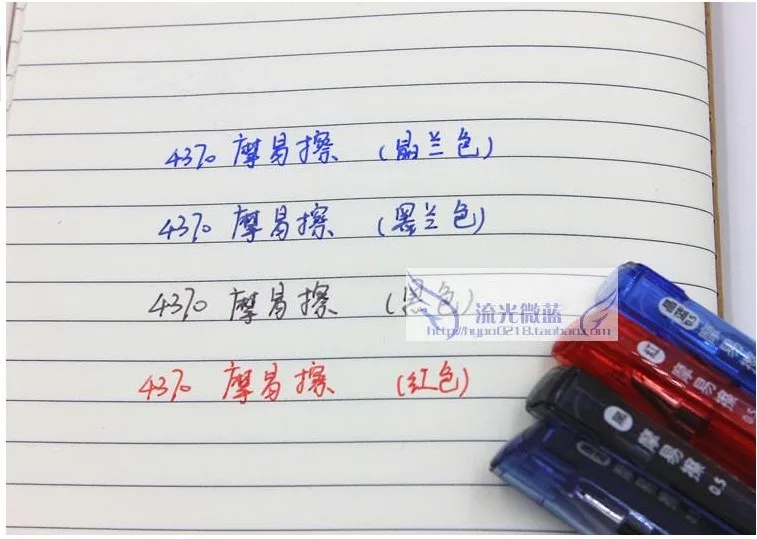 4370 摩易擦 (晶兰色)
4370 摩易擦 (墨兰色)
4370 摩易擦 (黑色)
4370 摩易擦 (红色)
流光微蓝
http://hypo0218.taobao.com
晶蓝
红 摩易擦 0.5
黑 摩易擦 0.5
摩易擦